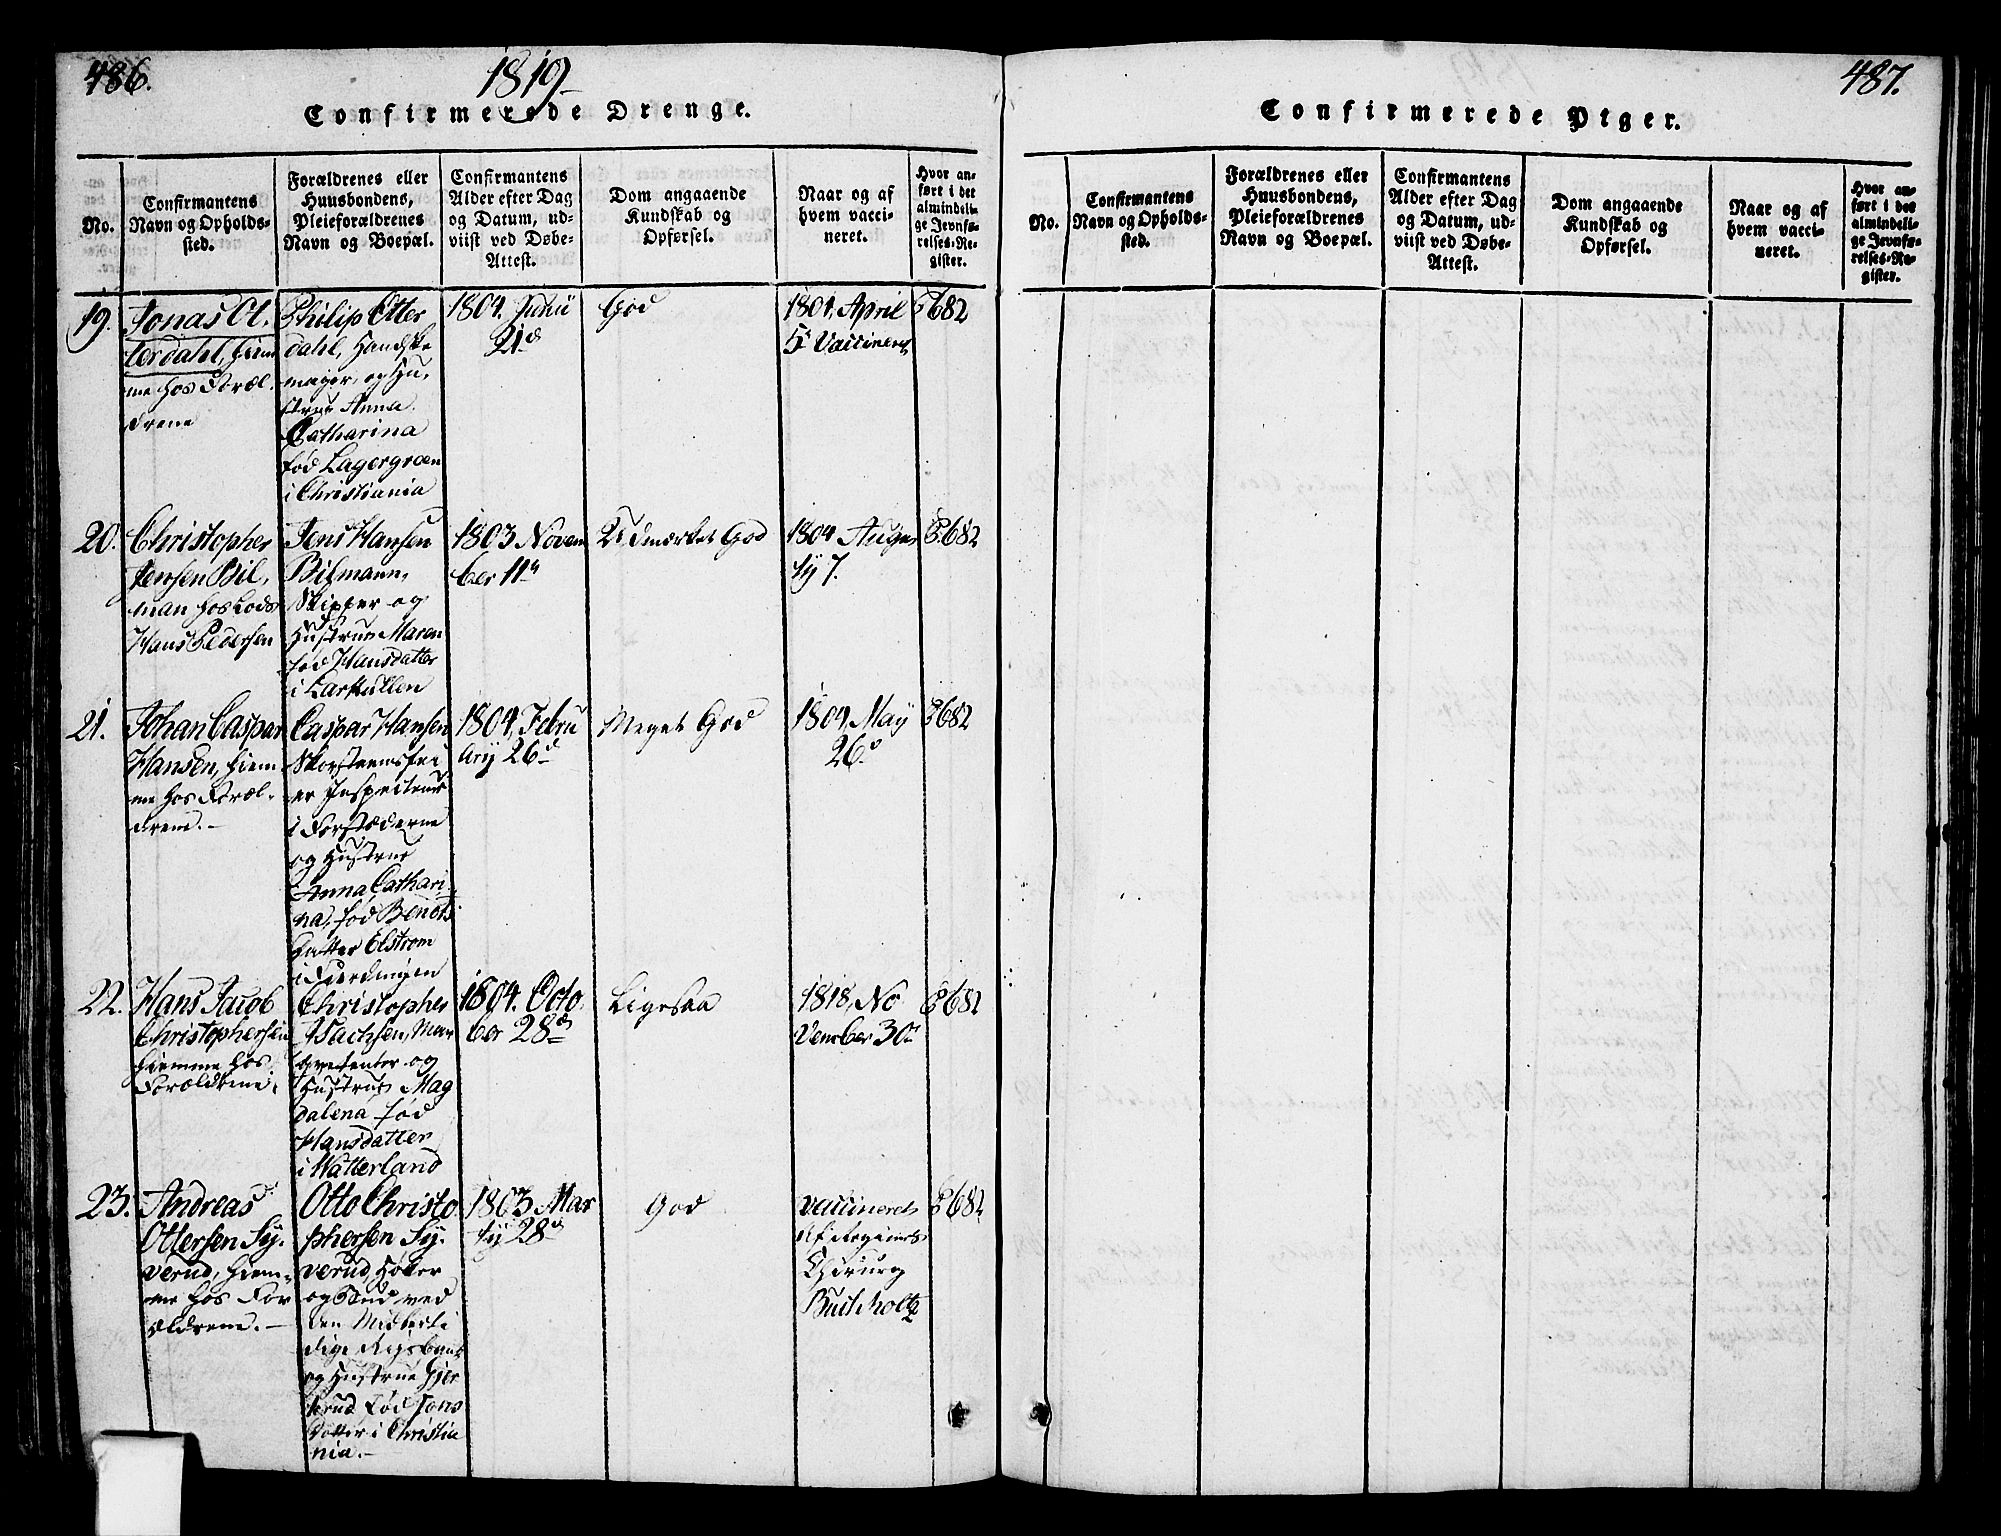 486.
1819
Confirmerede Drenge.
No.
Confirmantens
Navn og Opholds-
sted.
Forældrenes eller
Huusbondens,
Pleieforældrenes
Navn og Boepæl.
Confirmantens
Alder efter Dag
og Datum, ud-
viist ved Døbe-
Attest.
Dom angaaende
Kundskab og
Opførsel.
Naar og af
hvem vacci-
neret.
Hvor an-
ført i det
almindeli-
ge Jevnfø-
relses-Re-
gister.
19.
Jonas Ot-
terdahl, hiem
me hos Foræl-
drene
Philip Otter
dahl, Handske
mager, og Hu-
strue Anna
Catharina
fød Lagergreen
i Christiania
1804. Junii
21d
God
1804, April
5. Vaccineret
P682
20.
Christopher
Jensen Bil-
man hos Lods
Hans Pedersen
Jens Hansen
Bilmann,
Skipper og
Hustrue Maren
fød Hansdatter
i Larkullen
1803 Novem
ber 11
Udmærket God
1804 Augu
sty 7.
P682
21.
Johan Caspar
Hansen, hiem-
me hos Foræl-
drene.
Caspar Hansen
Skorsteensfei
er Inspecteur
i Forstæderne
og Hustrue
Anna Cathari-
na, fød Bendts
datter Elstrom
i Fierdingen
1804, Febru
ary 26d
Meget God
1804 May
26d
P682
22.
Hans Jacob
Christophersen
hiemme hos
Forældrene.
Christopher
og
Hustrue Mag
dalena fød
Hansdatter
i Watterland
1804. Octo
ber 28
Ligesaa
1818, No
vember 30
P682
23.
Andreas
Ottersen Sy-
verud, hiem-
me hos For
ældrene.
Otto Christo
phersen Sy-
verud, Høker
og Bud ved
den Midlerti
dige Rigsbank
og Hustrue Gjer
trud fød Jons
datter i Christia
nia.
1803 Mar
tij 28d
God
vaccineret
af Regiments
Chirurg
Buchholtz
P682
487.
Confirmerede Piger.
No.
Confirmantens
Navn og Opholds-
sted.
Forældrenes eller
Huusbondens,
Pleieforældrenes
Navn og Boepæl.
Confirmantens
Alder efter Dag
og Datum, ud-
viist ved Døbe-
Attest.
Dom angaaende
Kundskab og
Opførsel.
Naar og af
hvem vacci-
neret.
Hvor an-
ført i det
almindeli-
ge Jevnfø-
relses-Re-
gister.